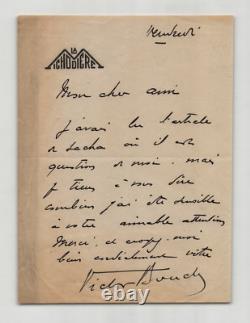 Vendredi
LA
MICHODIÈRE
Mon cher ami
J'avais lu l'article
de Sacha où il est
question de moi. mais
je tiens à vous dire
combien j'ai été sensible
à votre aimable attention
Merci, et croyez-moi
bien cordialement votre
Victor Boucher